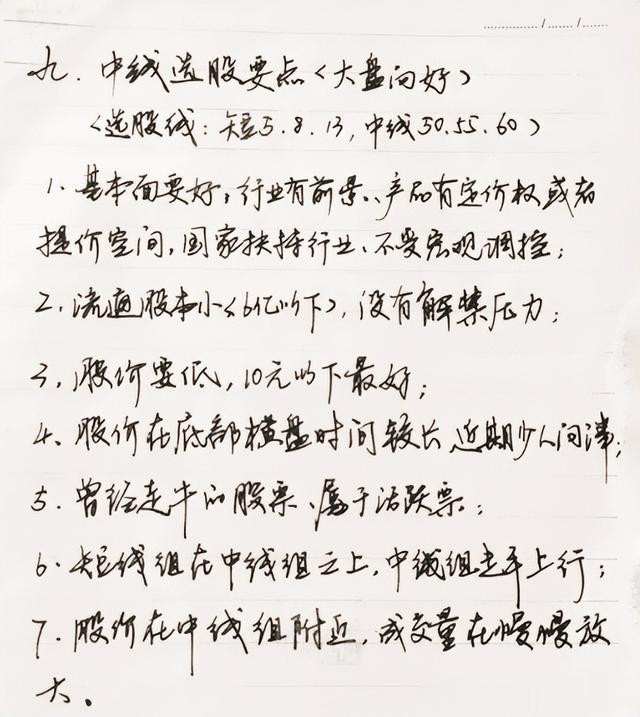 九. 中线选股要点(大盘向好)
(选股线: 短5.8.13, 中线50.55.60)
1. 基本面要好, 行业有前景、产品有定价权或者
提价空间, 国家扶持行业、不受宏观调控;
2. 流通股本小(6亿以下), 没有解禁压力;
3, 股价要低, 10元以下最好;
4、股价在底部横盘时间较长, 近期少人问津;
5. 曾经走牛的股票、属于活跃票;
6. 短线组在中线组之上, 中线组走平上行;
7. 股价在中线组附近, 成交量在慢慢放
大。